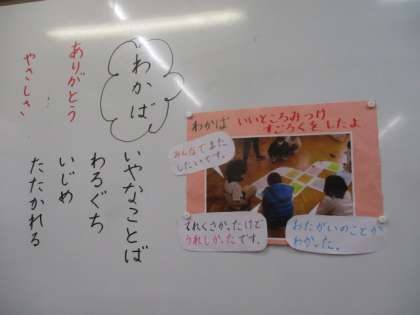 わかば
いやなことば
わるぐち
いじめ
たたかれる
ありがとう
やさしさ
わかば いいところみつけ
すごろくをしたよ
みんなでまた
したいです。
てれくさかったけど
うれしかったです。
おたがいのことが
わかった。